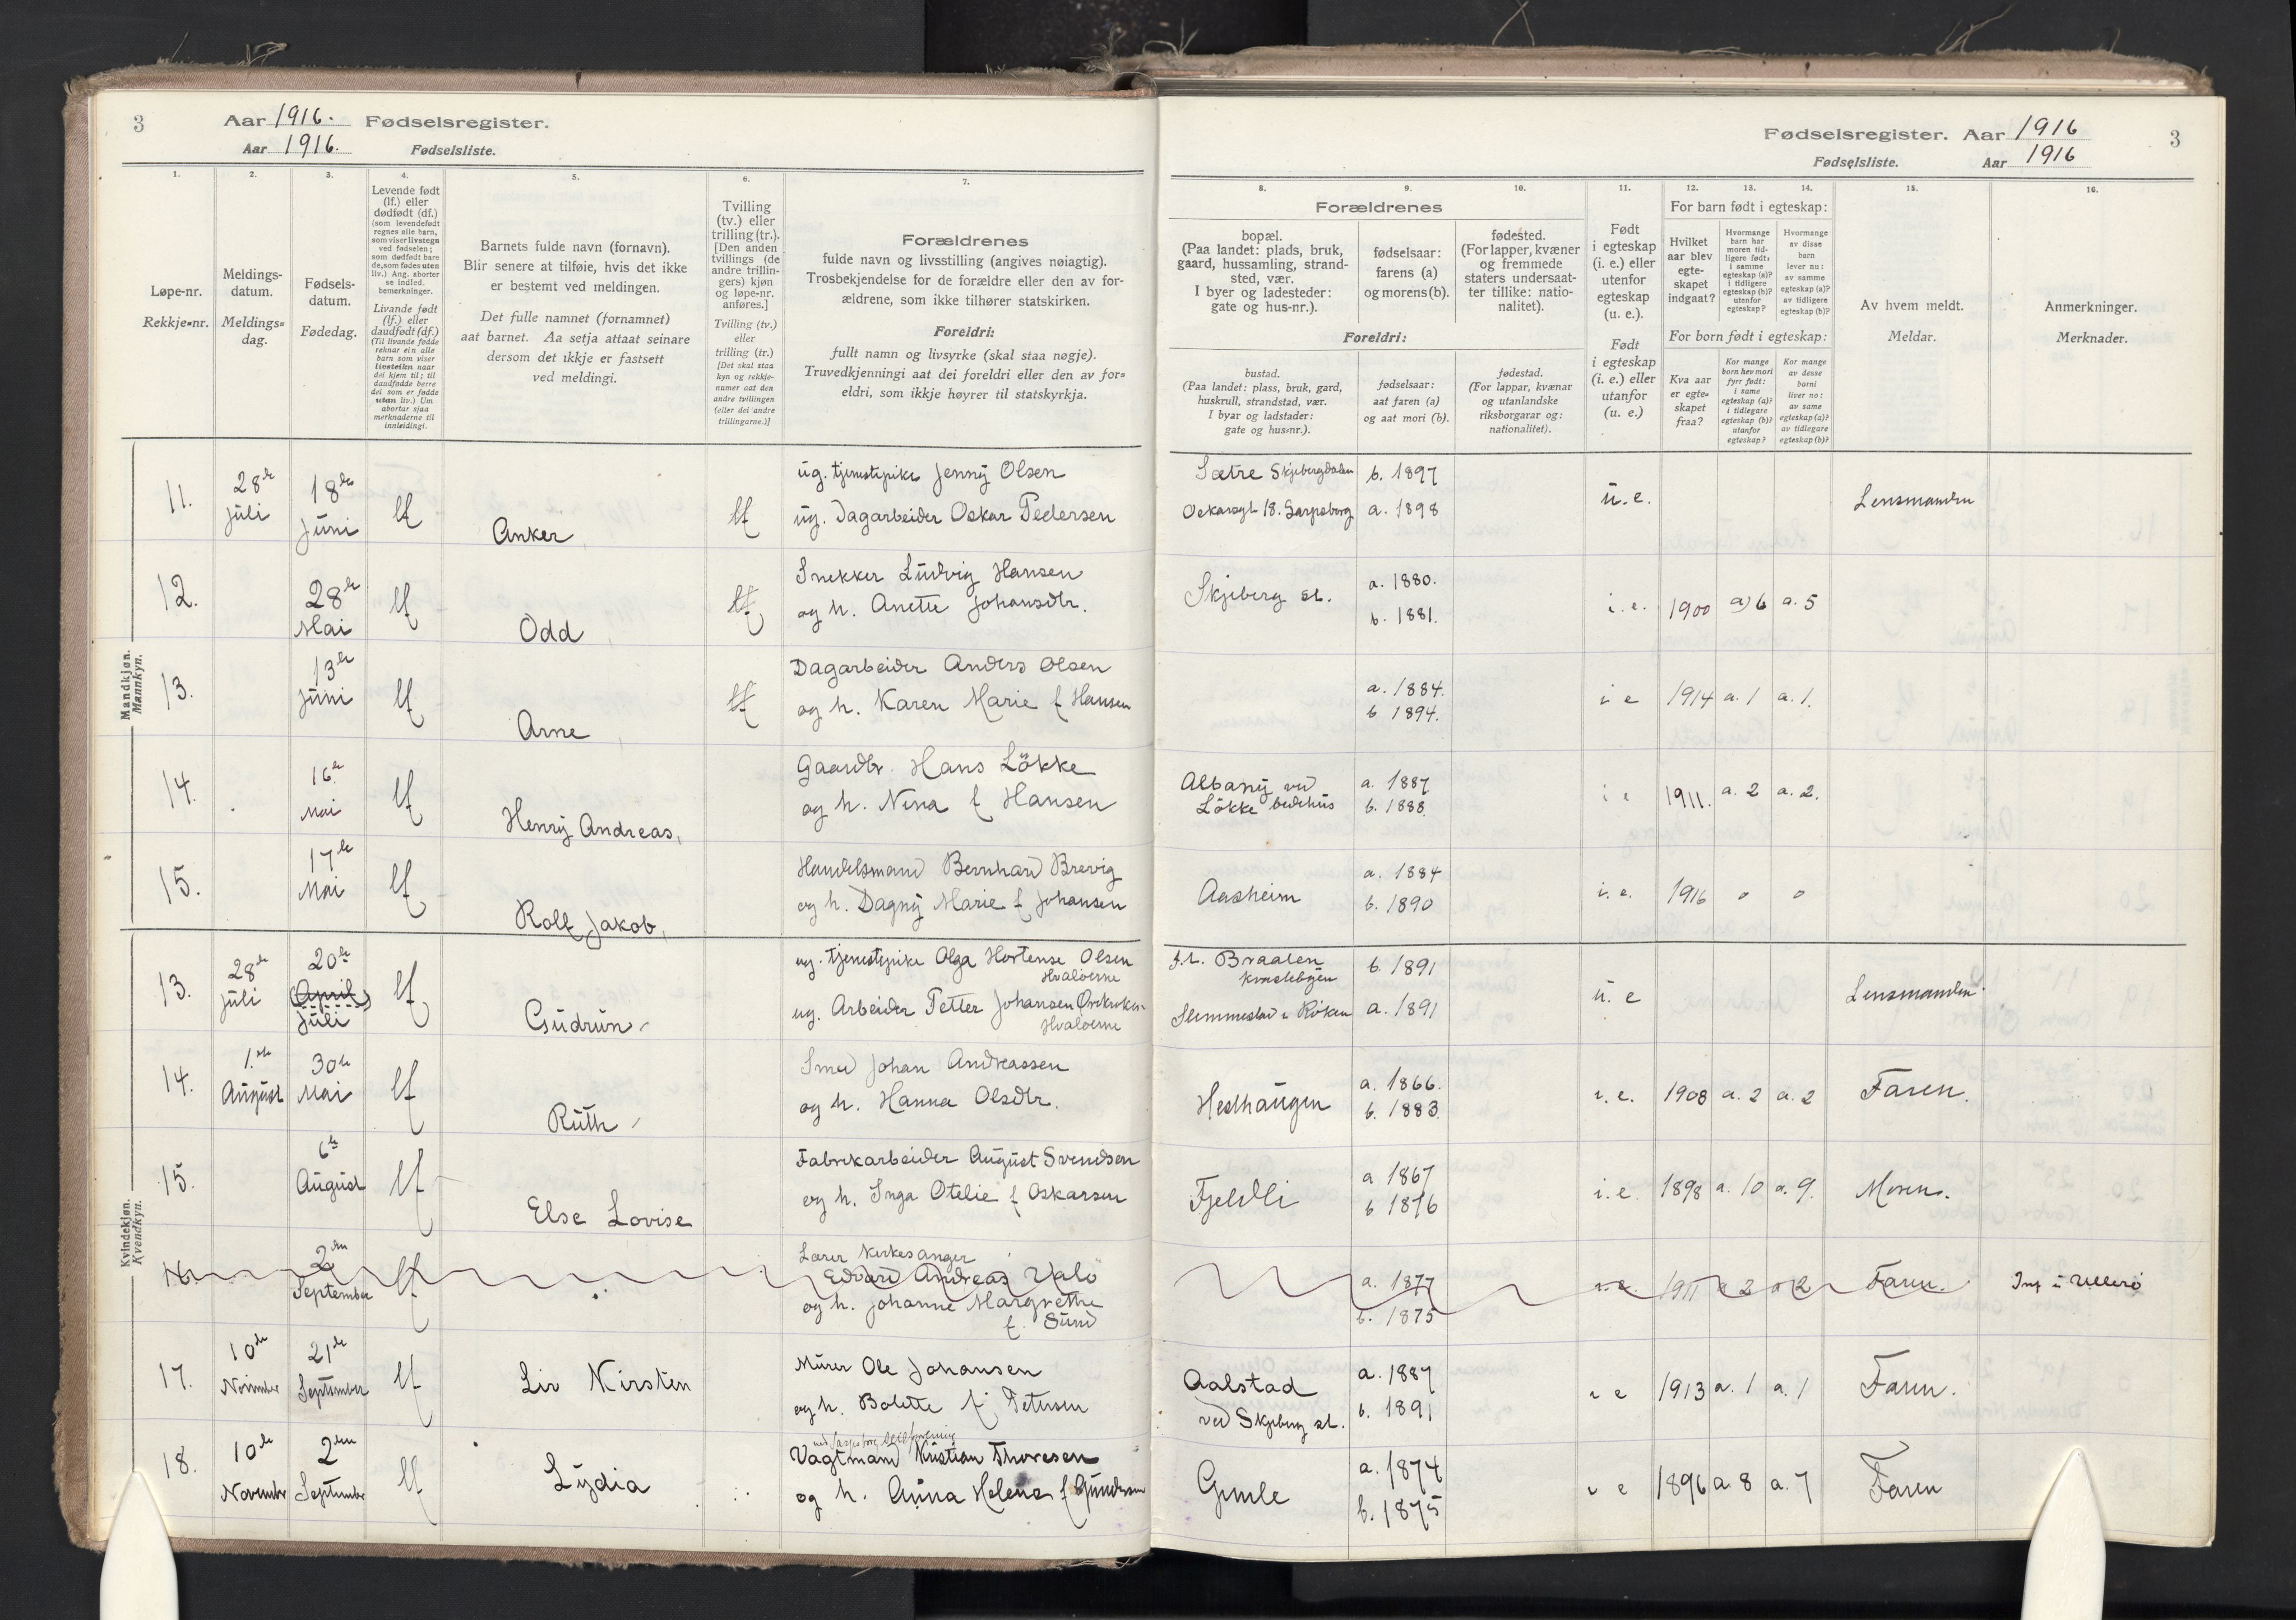 3
Aar 1916. Fødselsregister.
Aar 1916. Fødselsliste.
1.
Løpe-nr.
Rekkje-nr.
2.
Meldings-
datum.
Meldings-
dag.
3.
Fødsels-
datum.
Fødedag.
4.
Levende født
(lf.) eller
dødfødt (df.)
(som levendefødt
regnes alle barn,
som viser livstegn
ved fødselen;
som dødfødt bare
de, som fødes uten
liv.) Ang. aborter
se indled.
bemerkninger.
Livande født
(lf.) eller
daudfødt (df.)
(Til livande fødde
reknar ein alle
barn som viser
livsteikn naar
dei kjem til; til
daudfødde berre
dei som er fødde
utan liv.) Um
abortar sjaa
merknaderne til
innleidingi.
5.
Barnets fulde navn (fornavn).
Blir senere at tilføie, hvis det ikke
er bestemt ved meldingen.
Det fulle namnet (fornamnet)
aat barnet. Aa setja attaat seinare
dersom det ikkje er fastsett
ved meldingi.
6.
Tvilling
(tv.) eller
trilling (tr.).
[Den anden
tvillings (de
andre trillin-
gers) kjøn
og løpe-nr.
anføres.]
Tvilling (tv.)
eller
trilling (tr.)
[Det skal staa
kyn og rekkje-
numer aat den
andre tvillingen
(eller dei andre
trillingarne.)]
7.
Forældrenes
fulde navn og livsstilling (angives nøiagtig).
Trosbekjendelse for de forældre eller den av for-
ældrene, som ikke tilhører statskirken.
Foreldri:
fullt namn og livsyrke (skal staa nøgje).
Truvedkjenningi aat dei foreldri eller den av for-
eldri, som ikkje høyrer til statskyrkja.
Fødselsregister. Aar 1916
3
Fødselsliste. Aar 1916
8.
9.
10.
Forældrenes
bopæl.
(Paa landet: plads, bruk,
gaard, hussamling, strand-
sted, vær.
I byer og ladesteder:
gate og hus-nr.).
fødselsaar:
farens (a)
og morens (b).
fødested.
(For lapper, kvæner
og fremmede
staters undersaat-
ter tillike: natio-
nalitet).
Foreldri:
bustad.
(Paa landet: plass, bruk, gard,
huskrull, strandstad, vær.
I byar og ladstader:
gate og hus-nr.).
fødselsaar:
aat faren (a)
og aat mori (b).
fødestad.
(For lappar, kvænar
og utanlandske
riksborgarar og:
nationalitet).
11.
Født
i egteskap
(i. e.) eller
utenfor
egteskap
(u. e.).
Født
i egteskap
(i. e.) eller
utanfor
(u. e.)
12.
13.
14.
For barn født i egteskap:
Hvilket
aar blev
egte-
skapet
indgaat?
Hvormange
barn har
moren tid-
ligere født:
i samme
egteskap (a)?
i tidligere
egteskap (b)?
utenfor
egteskap?
Hvormange
av disse
barn
lever nu:
av samme
egteskap (a)?
av tidligere
egteskap (b)?
For born født i egteskap:
Kva aar
er egte-
skapet
fraa?
Kor mange
born hev mori
fyrr født:
i same
egteskap (a)?
i tidlegare
egteskap (b)?
utanfor
egteskap?
Kor mange
av desse
borni
liver no:
av same
egteskap (a)?
av tidlegare
egteskap (b)?
15.
Av hvem meldt.
Meldar.
16.
Anmerkninger.
Merknader.
Mandkjøn.
Mannkyn.
11. 28de juli 18de juni lf Anker lf ug. tjenestepike Jenny Olsen
ug. Dagarbeider Oskar Pedersen
Sætre Skjebergdalen b. 1897
Oskarsgt 18. Sarpsborg a. 1898 u. e. Lensmanden
12. 28de Mai lf Odd lf Snekker Ludvig Hansen
og h. Anette Johansdtr.
Skjeberg st. a. 1880. b. 1881. i. e. 1900 a) 6 a. 5
13. 13de juni lf Arne lf Dagarbeider Anders Olsen
og h. Karen Marie f Hansen
a. 1884. b 1894. i e 1914 a. 1 a. 1.
14. 16de Mai lf Henry Andreas, Gaardbr. Hans Lökke
og h. Nina f Hansen
Albany ved
Lökke bedehus a. 1887 b. 1888. i e 1911. a. 2 a. 2.
15. 17de Mai lf Rolf Jakob, Handelsmand Bernhard Brevig
og h. Dagny Marie f Johansen
Aasheim a. 1884 b. 1890 i. e. 1916 0 0
Kvindekjøn.
Kvendkyn.
13. 28de juli 20de (April) juli lf Gudrun ug. tjenestepike Olga Hortense Olsen
Hvaløerne
ug. Arbeider Petter Johansen
Hvaløerne
Braaten b. 1891
Slemmestad i Röken a. 1891 u. e Lensmanden
14. 1ste August 30te Mai lf Ruth Smed Johan Andreassen
og h. Hanna Olsdtr.
Heslhaugen a. 1866. b. 1883. i. e. 1908 a. 2 a. 2 Faren.
15. 6te August lf Else Lovise Fabrikarbeider August Svendsen
og h. Inga Otelie f Oskarsen
Fjeldli a 1867 b 1876 i. e. 1898 a. 10 a. 9. Moren.
16. 2den September lf Lærer Kirkesanger
Edvard Andreas Valö
og h. Johanne Margrethe
f. Sund
a. 1877 b. 1875 i. e. 1911 a 2 a 2 Faren. Inf i Ullerö
17. 10de November 21de September lf Liv Kirsten Murer Ole Johansen
og h. Bolette f Petersen
Aalstad
ved Skjeberg st. a. 1887 b. 1891 i e 1913 a. 1 a. 1 Faren.
18. 10de November 2den September lf Lydia
Vagtmand Kristian Thoresen
og h. Anna Helene f Gundersen
Gimle a. 1874 b. 1875 i e 1896 a. 8 a. 7 Faren